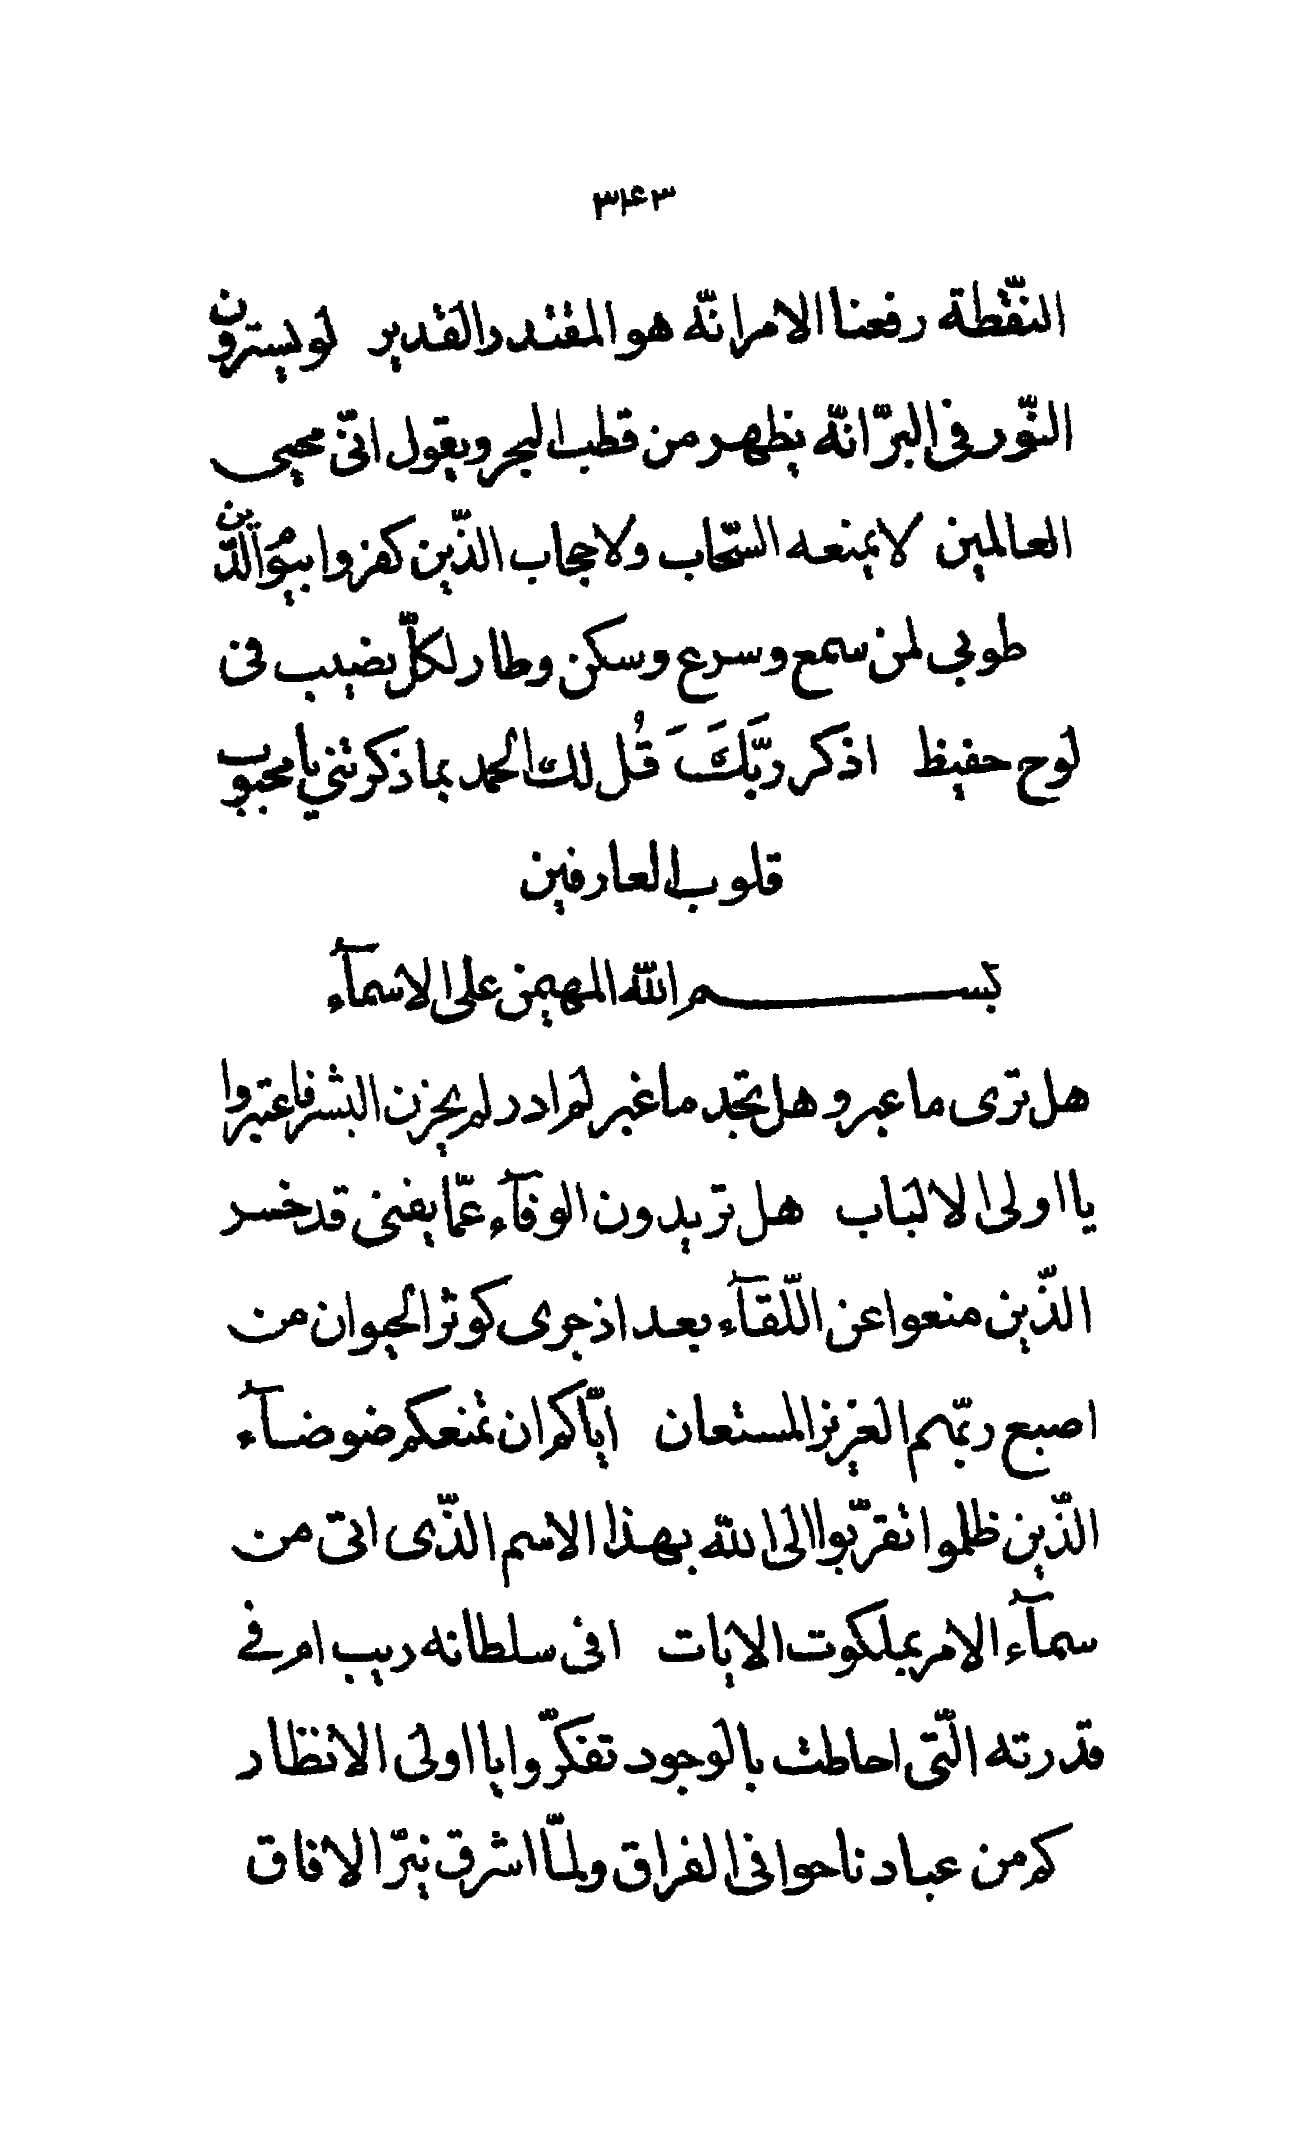 ٣٤٣
النّقطة رفعنا الامر انّه هو المقتدر القدير لو يسترون
النّور فى البرّ انّه يظهر من قطب البحر و يقول انّى محيى
العالمين لا يمنعه السّحاب ولا حجاب الذّين كفروا بيوم الدّين
طوبى لمن سمع و سرع و سكن و طار لكلّ نصيب فى
لوح حفيظ اذكر ربّكَ َ قُل لك الحمد بما ذكرتنى يا محبوب
قلوب العارفين
بسم الله المهيمن على الاسمآء
هل ترى ما عبر و هل تجد ما غبر لم ادر لم يحزن البشر فاعتبروا
يا اولى الالباب هل تريدون الوفآء عمّا يفنى قد خسر
الذّين منعوا عن اللّقآء بعد اذ جرى كوثر الحيوان من
اصبع ربّهم العزيز المستعان ايّاكم ان تمنعكم ضوضآء
الذّين ظلموا تقرّبوا الى الله بهذا الاسم الذّى اتى من
سمآء الامر بملكوت الايات افى سلطانه ريب ام فى
قدرته الّتى احاطت بالوجود تفكّروا يا اولى الانظار
كم من عباد ناحوا فى الفراق ولمّا اشرق نيّر الافاق